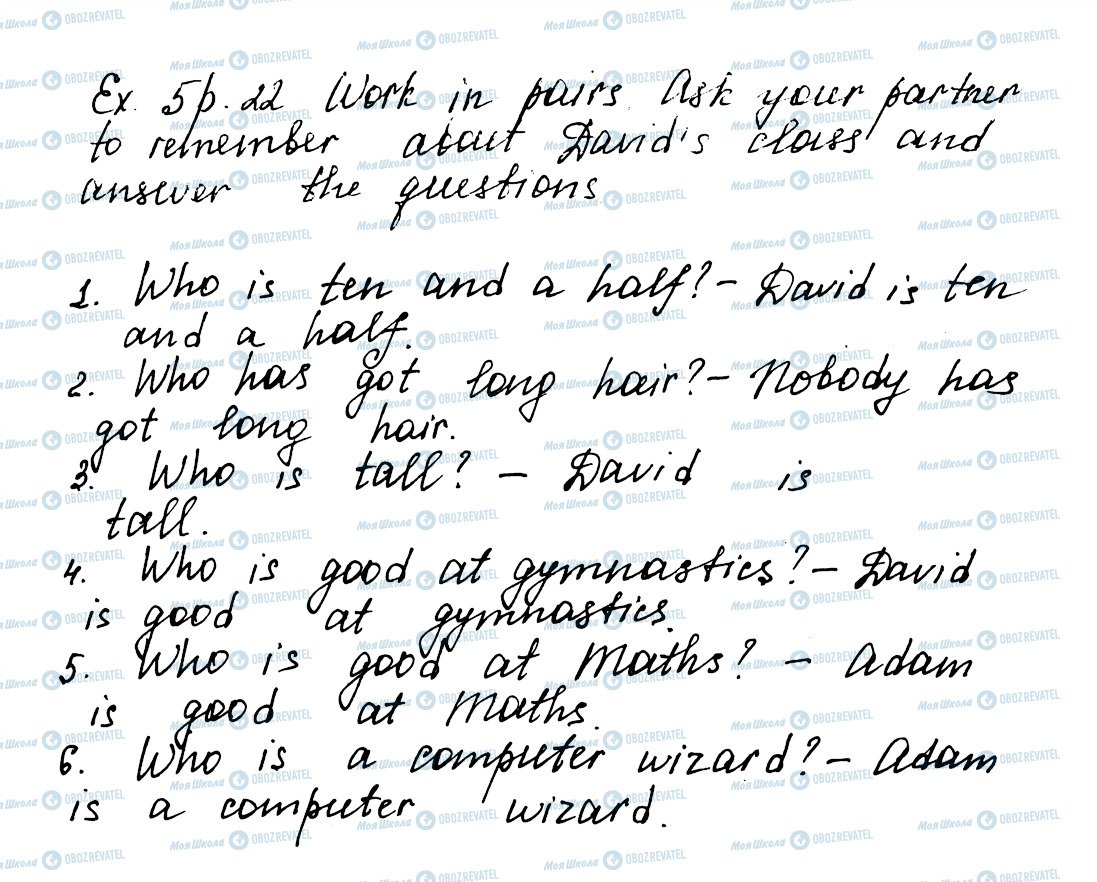 Ex. 5 p. 22 Work in pairs. Ask your partner
to remember about David's class and
answer the questions.
1. Who is ten and a half? - David is ten
and a half.
2. Who has got long hair? - Nobody has
got long hair.
3. Who is tall? - David is
tall.
4. Who is good at gymnastics? - David
is good at gymnastics.
5. Who is good at Maths? - Adam
is good at Maths.
6. Who is a computer wizard? - Adam
is a computer wizard.
Моя Школа OBOZREVATEL